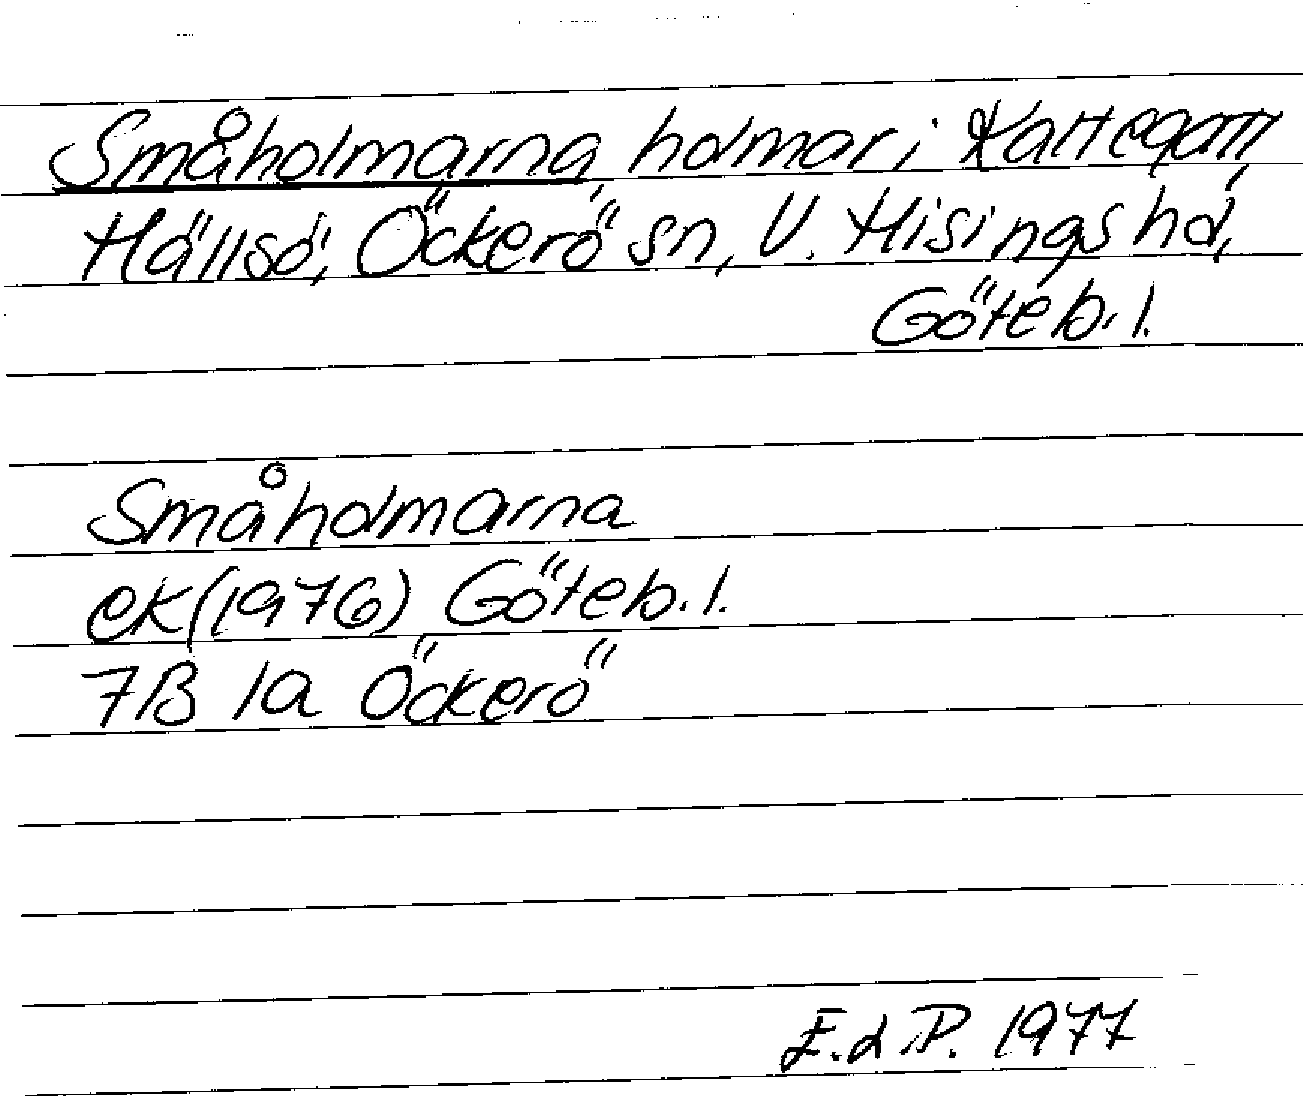 Småholmarna, holmar i Kattegatt,
Hällsö, Öckerö sn, V. Hisings hd,
Göteb. l.
Småholmarna
ek (1976) Göteb. l.
7B 1a Öckerö
E. d P. 1977